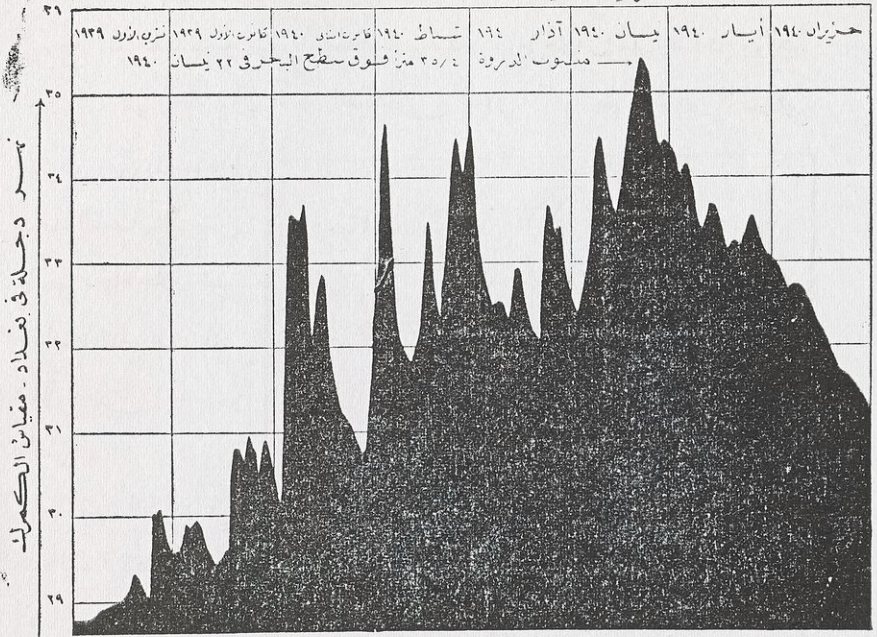 حزيران ١٩٤٠
أيار ١٩٤٠
نيسان ١٩٤٠
آذار ١٩٤
شباط ١٩٤٠
كانون الثاني ١٩٤٠
كانون الأول ١٩٣٩
تشرين الأول ١٩٣٩
منسوب الذروة ٣٥/٤ متراً فوق سطح البحر في ٢٢ نيسان ١٩٤٠
٣٩
٣٥
٣٤
٣٣
٣٢
٣١
٣٠
٢٩
نهر دجلة في بغداد - مقياس الكمرك